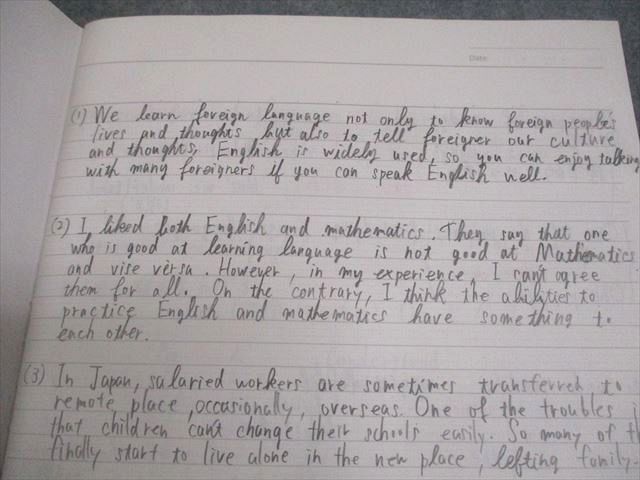 Date
(1) We learn foreign language not only to know foreign people's
lives and thoughts, but also to tell foreigner our culture
and thoughts, English is widely used, so you can enjoy talking
with many foreigners if you can speak English well.
(2) I liked both English and mathematics. They say that one
who is good at learning language is not good at Mathematics
and vise versa. However, in my experience, I can't agree
them for all. On the contrary, I think the abilities to
practice English and mathematics have something to
each other.
(3) In Japan, salaried workers are sometimes transferred to
remote place, occasionally, overseas. One of the troubles
that children can't change their schools easily. So many of
finally start to live alone in the new place, lefting family.